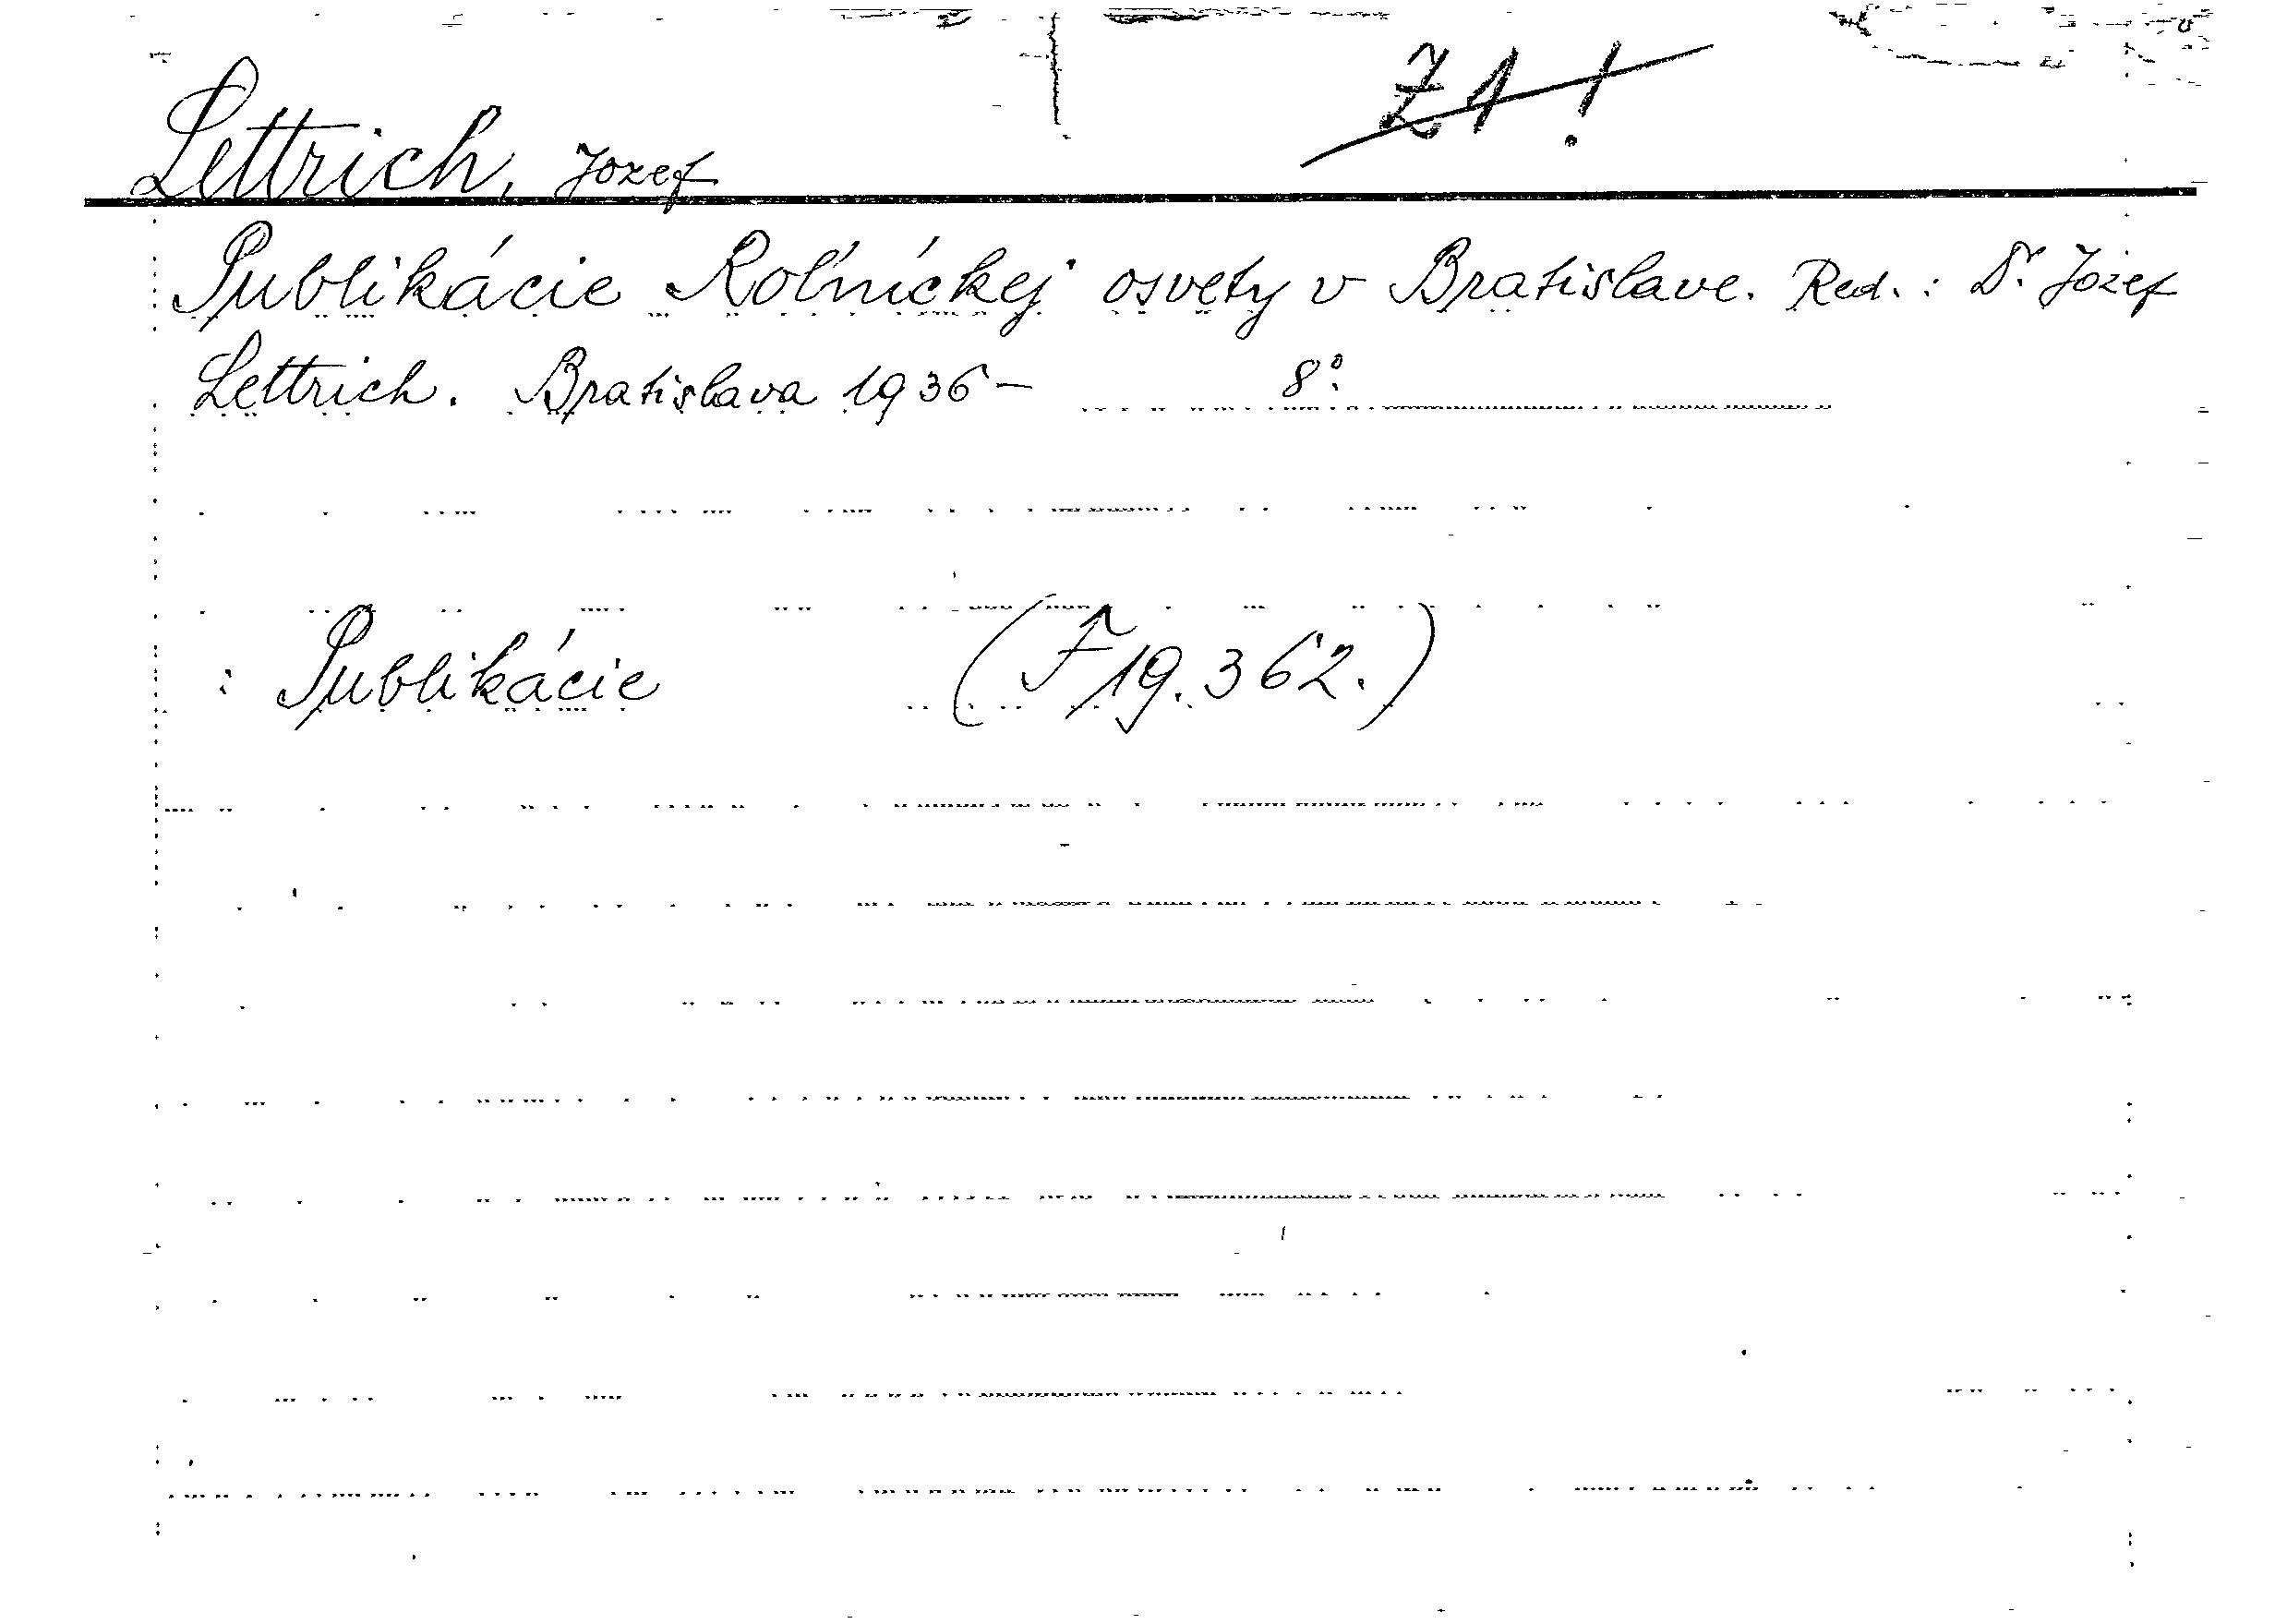 Z 1 !
Lettrich, Jozef
Publikácie Roľníckej osvety v Bratislave. Red.: Dr. Jozef
Lettrich. Bratislava 1936– 8°.
: Publikácie (F 19.362.)